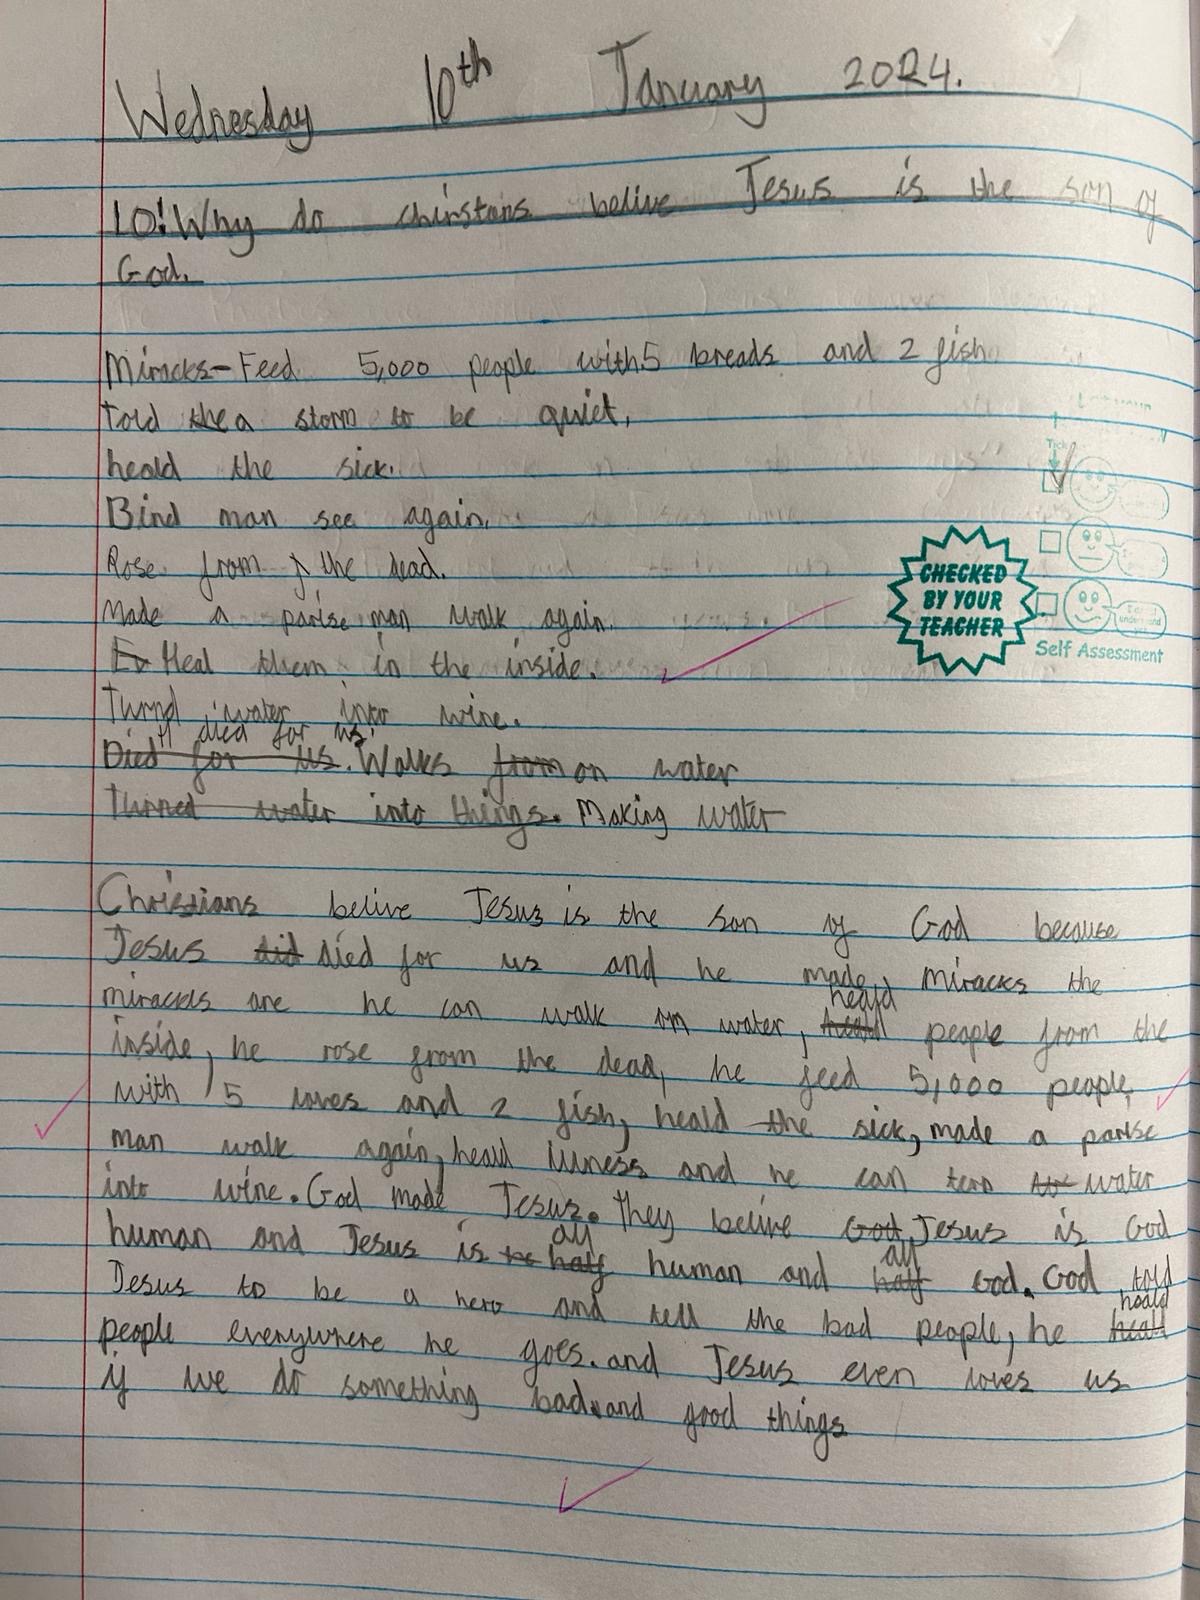 Wednesday 10th January 2024.
LO: Why do chirstans belive Jesus is the son of
God.
Miracks- Feed 5,000 people with 5 breads and 2 fish
Told the a storm to be quiet,
heald the sick.
Bind man see again.
Rose from the dead.
Made a parlse man walk again.
Ev Heal them in the inside.
Turnd water into wine.
died for us.
Died for us. Walks from on water
Turned water into things. Making water
CHECKED
BY YOUR
TEACHER
Tick
Self Assessment
Christians belive Jesus is the son of God because
Jesus did died for us and he made miracks the
mirackls are he can walk on water, heald people from the
inside, he rose from the dead, he feed 5,000 people,
with 5 loves and 2 fish, heald the sick, made a parlse
man walk again, heald illness and he can tern water
into wine. God made Jesus. They belive God Jesus is God
human and Jesus is be half all human and half all God. God told
Jesus to be a hero and tell the bad people, he heald
people everywhere he goes. and Jesus even loves us
if we do something bad and good things